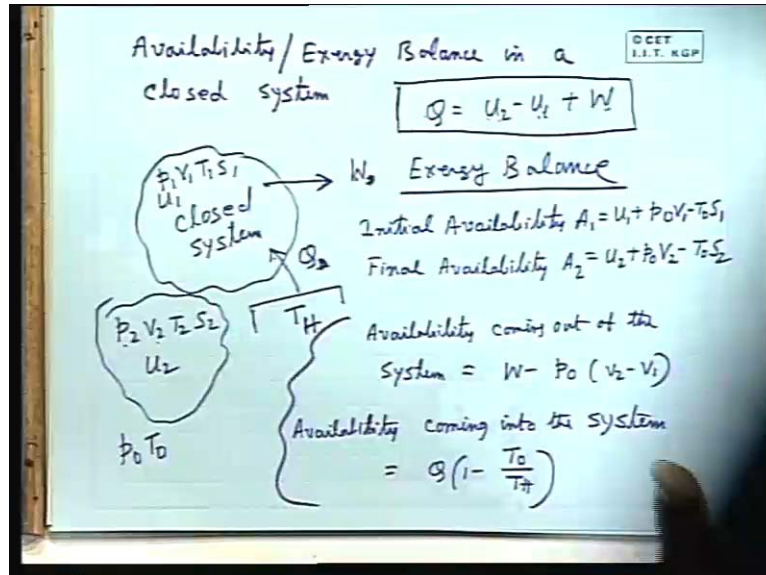 Availability/Exergy Balance in a
closed system
© CET
I.I.T. KGP
Q = U2 - U1 + W
p1 V1 T1 S1
U1
closed
system
W
Q
TH
p2 V2 T2 S2
U2
p0 T0
Exergy Balance
Initial Availability A1 = U1 + p0V1 - T0S1
Final Availability A2 = U2 + p0V2 - T0S2
Availability coming out of the
system = W - p0 (V2 - V1)
Availability coming into the system
= Q(1 - T0/TH)